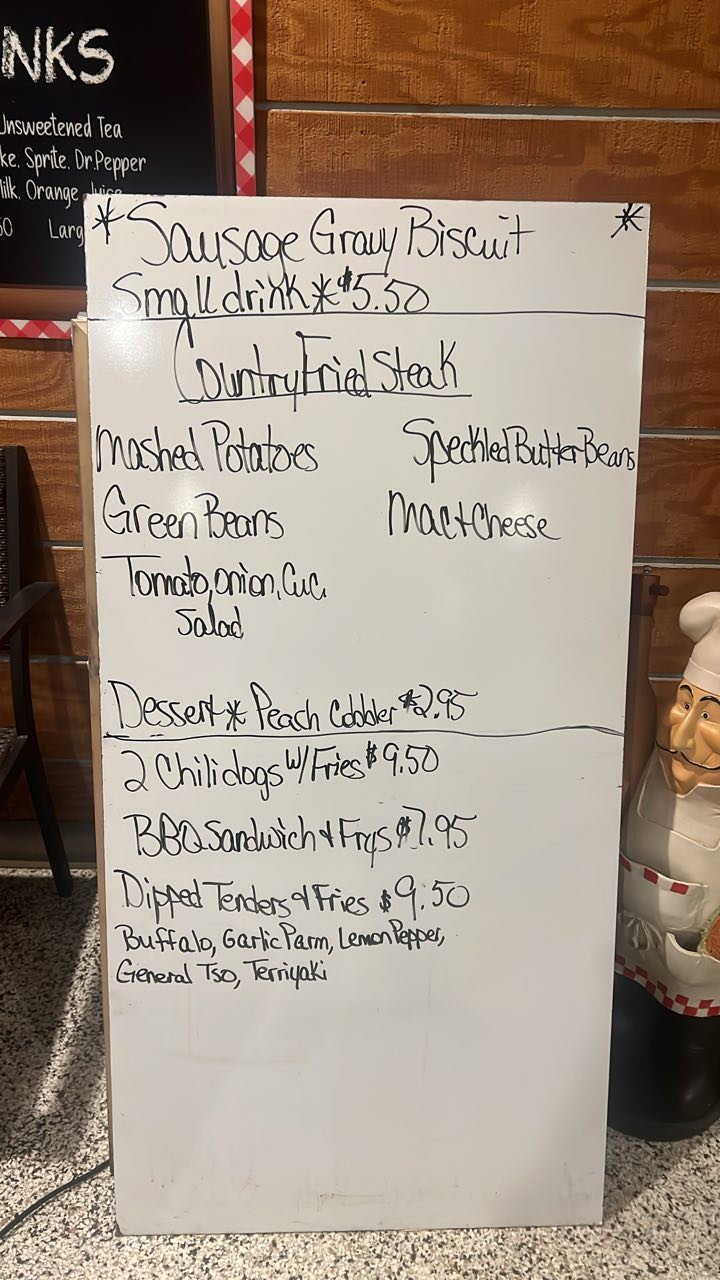 NKS
Unsweetened Tea
ke. Sprite. Dr.Pepper
ilk. Orange Juice
50 Larg
* Sausage Gravy Biscuit *
Small drink * $5.50
Country Fried Steak
Mashed Potatoes Speckled Butter Beans
Green Beans Mac + Cheese
Tomato, onion, Cuc.
Salad
Dessert * Peach Cobbler $2.95
2 Chili dogs w/ Fries $9.50
BBQ Sandwich & Frys $7.95
Dipped Tenders & Fries $9.50
Buffalo, Garlic Parm, Lemon Pepper,
General Tso, Terriyaki